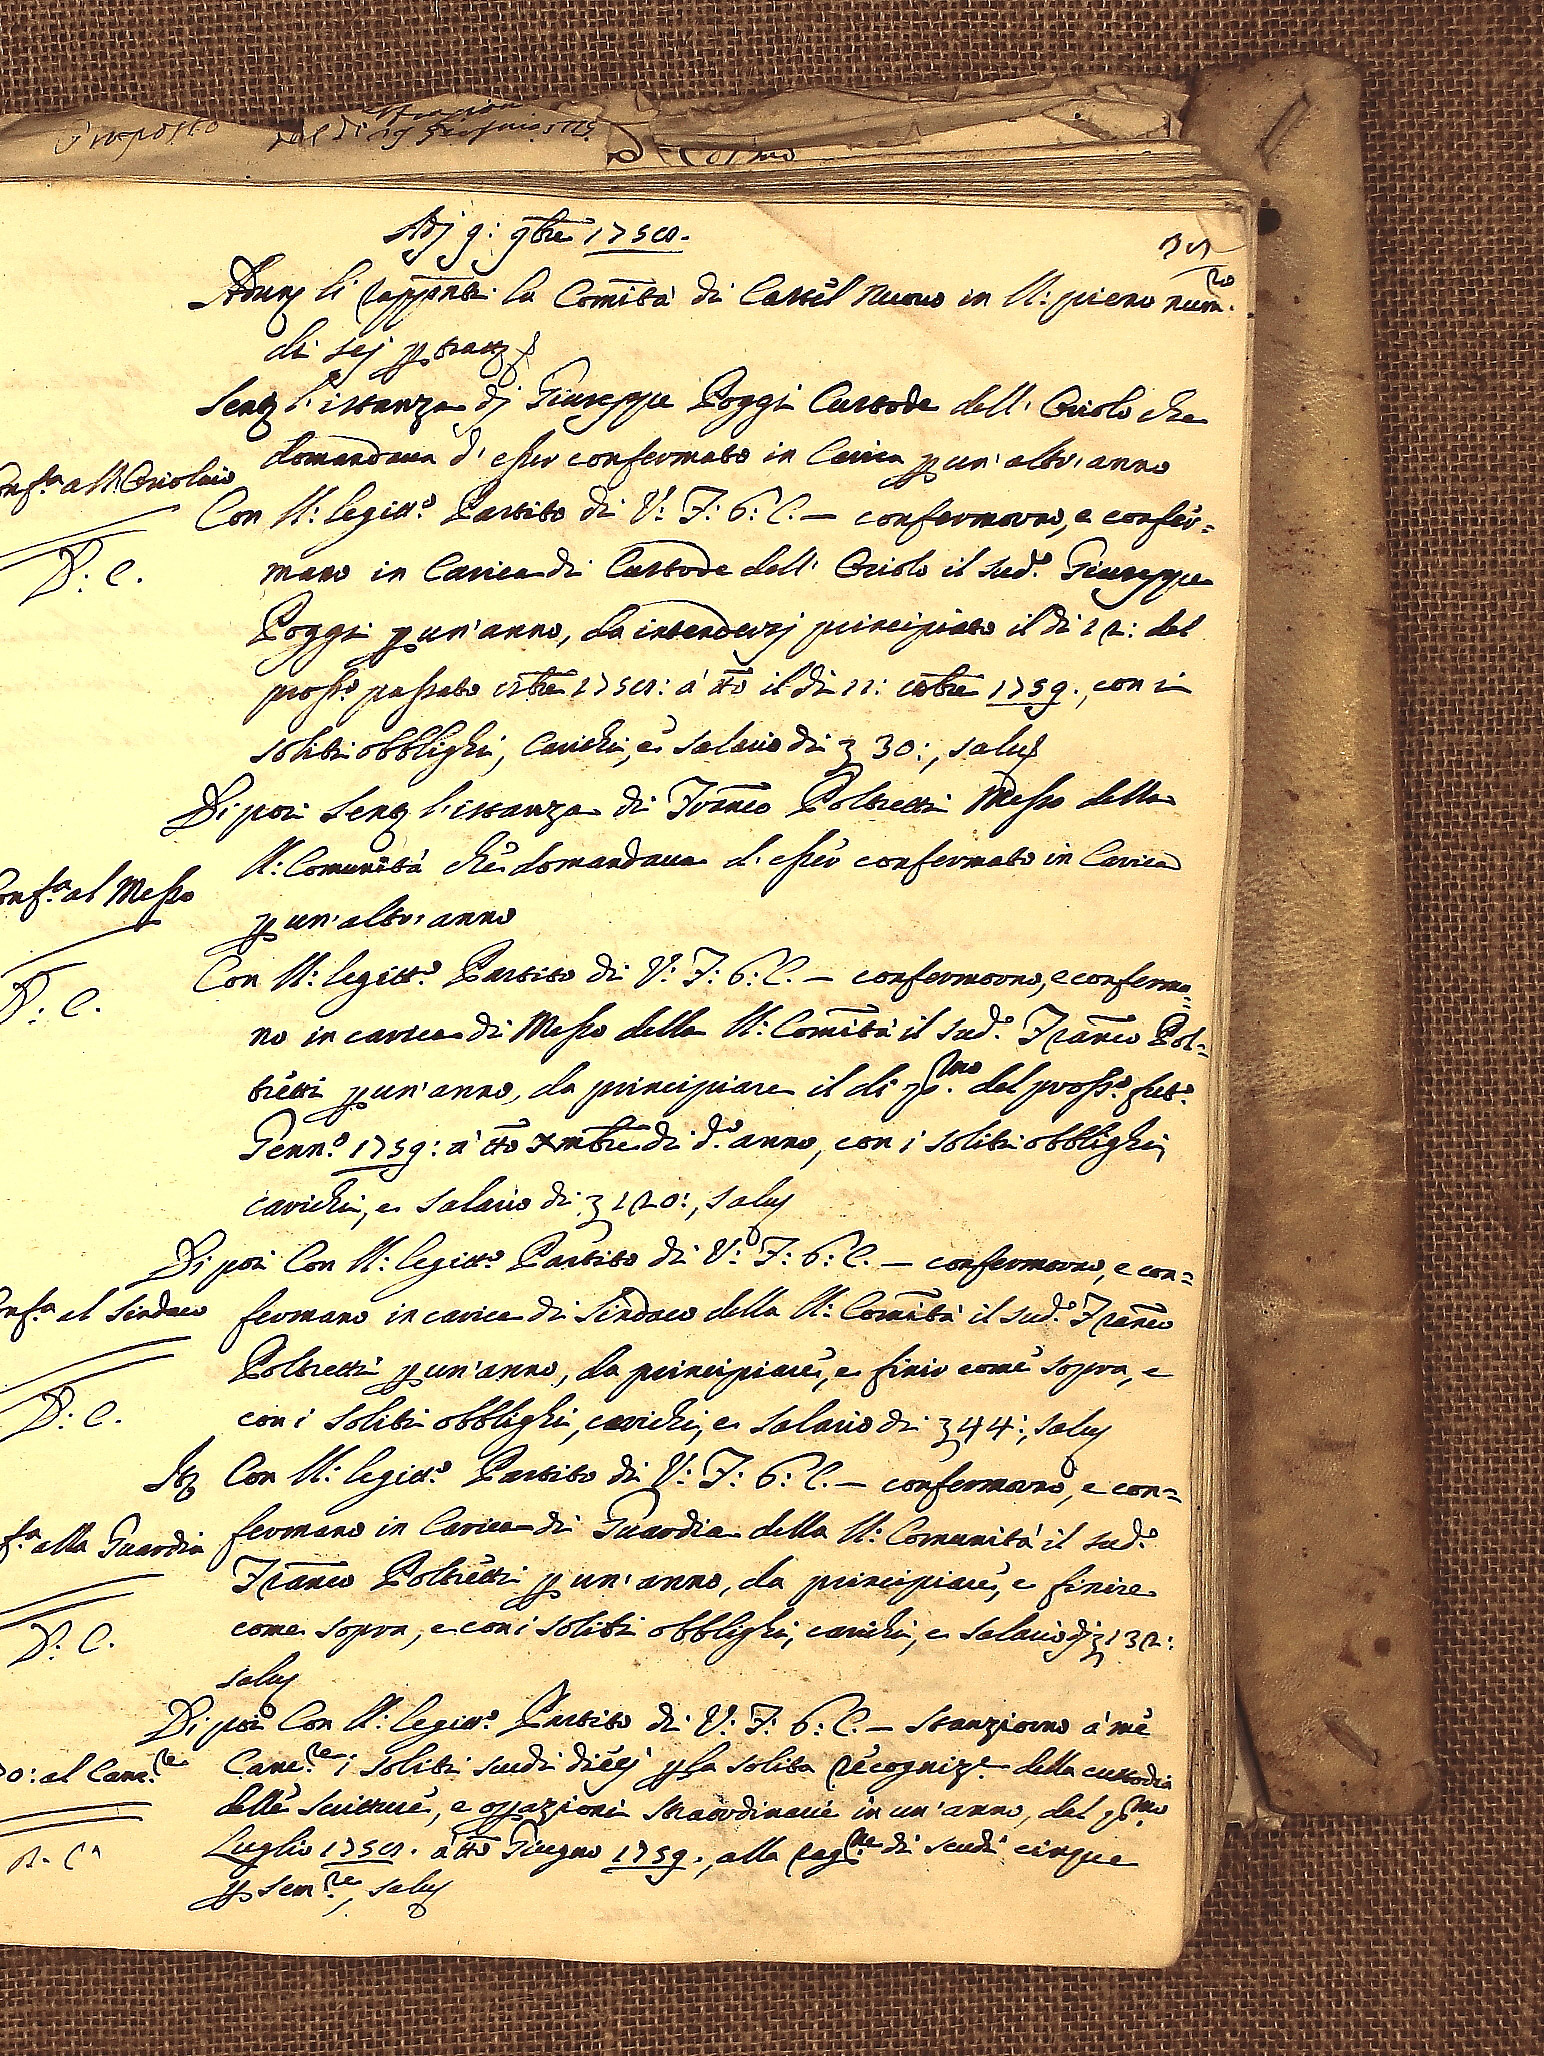 Proposto
Adj 9: 9bre 1758.
Adunq li rapp̄nti la Comītà di Castèl Nuovo in N: pieno num.ro
di sej p trattz
Sentz l'istanza dj Giuseppe Poggi Custode dell' Oriolo che
domandava d' esser confermato in Carica p un' altr' anno
Conf.a all' Oriolaio
Con N: legitt.o Partito di V: F: 6: C. — confermorno, e confer=
D: C.
mano in Carica di Custode dell' Oriolo il sud.o Giuseppe
Poggi p un' anno, da intendersj principiato il di 12: del
pross.o passato 8bre 1758: à tto il di 11: 8bre 1759., con i
soliti obblighi, carichi, e salario di 30:, salvs
Di poi Sentz l'istanza di Franco Poltretti Messo della
N: Comunità che domandava d' esser confermato in Carica
Conf.a al Messo
p un' altr' anno
Con N: legitt.o Partito di V: F: 6: C. — confermorno, e conferma=
D: C.
no in carica di Messo della N: Comītà il sud.o Franco Pol=
tretti p un' anno, da principiare il di p.mo del pross.o fut.o
Genn.o 1759: à tto Xmbre di d.o anno, con i soliti obblighi,
carichi, e salario di 120:, salvs
Di poi Con N: legitt.o Partito di V: F: 6: C. — confermorno, e con=
Conf.a al Sindaco
fermano in carica di Sindaco della N: Comītà il sud.o Franco
Poltretti p un' anno, da principiare, e finir come sopra, e
D: C.
con i soliti obblighi, carichi, e salario di 44:, salvs
Itz Con N: legitt.o Partito di V: F: 6: C. — confermorno, e con=
f.a alla Guardia
fermano in Carica di Guardia della N: Comunità il sud.o
Franco Poltretti p un' anno, da principiare, e finire
D: C.
come sopra, e con i soliti obblighi, carichi, e salario dj 132:
salvs
Di poi Con N: legitt.o Partito di V: F: 6: C. — stanziorno à me
al Canc.re
Canc.re i soliti scudi diecj p la solita recogniz.e della custodia
delle scritture, e opazioni straordinarie in un' anno, dal p.mo
Luglio 1758. à tto Giugno 1759., alla rag.ne di scudi cinque
p sem.re, salvs